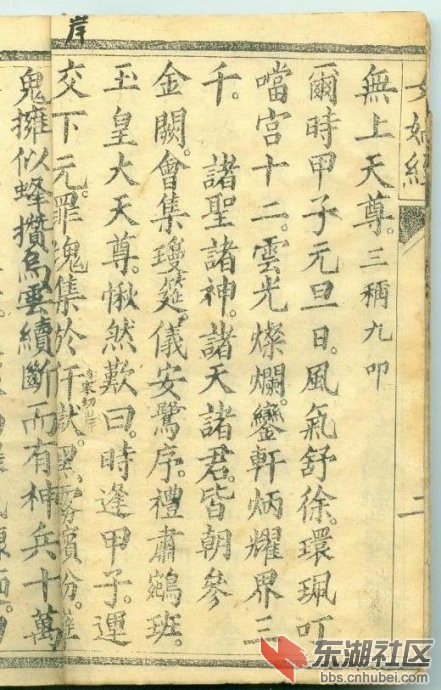 經
二
無上天尊。三稱九叩
爾時甲子元旦日。風氣舒徐。環珮叮
噹宮十二。雲光燦爛。鑾軒炳耀界三
千。 諸聖諸神。諸天諸君。皆朝參
金闕。會集瓊筵。儀安鷺序。禮肅鵷班。
玉皇大天尊。愀然歎曰。時逢甲子。運
交下元。罪魂集於犴獄。黑霧繽紛。
鬼擁似蜂攢。烏雲續斷。而有神兵十萬
岸
东湖社区
bbs.cnhubei.com